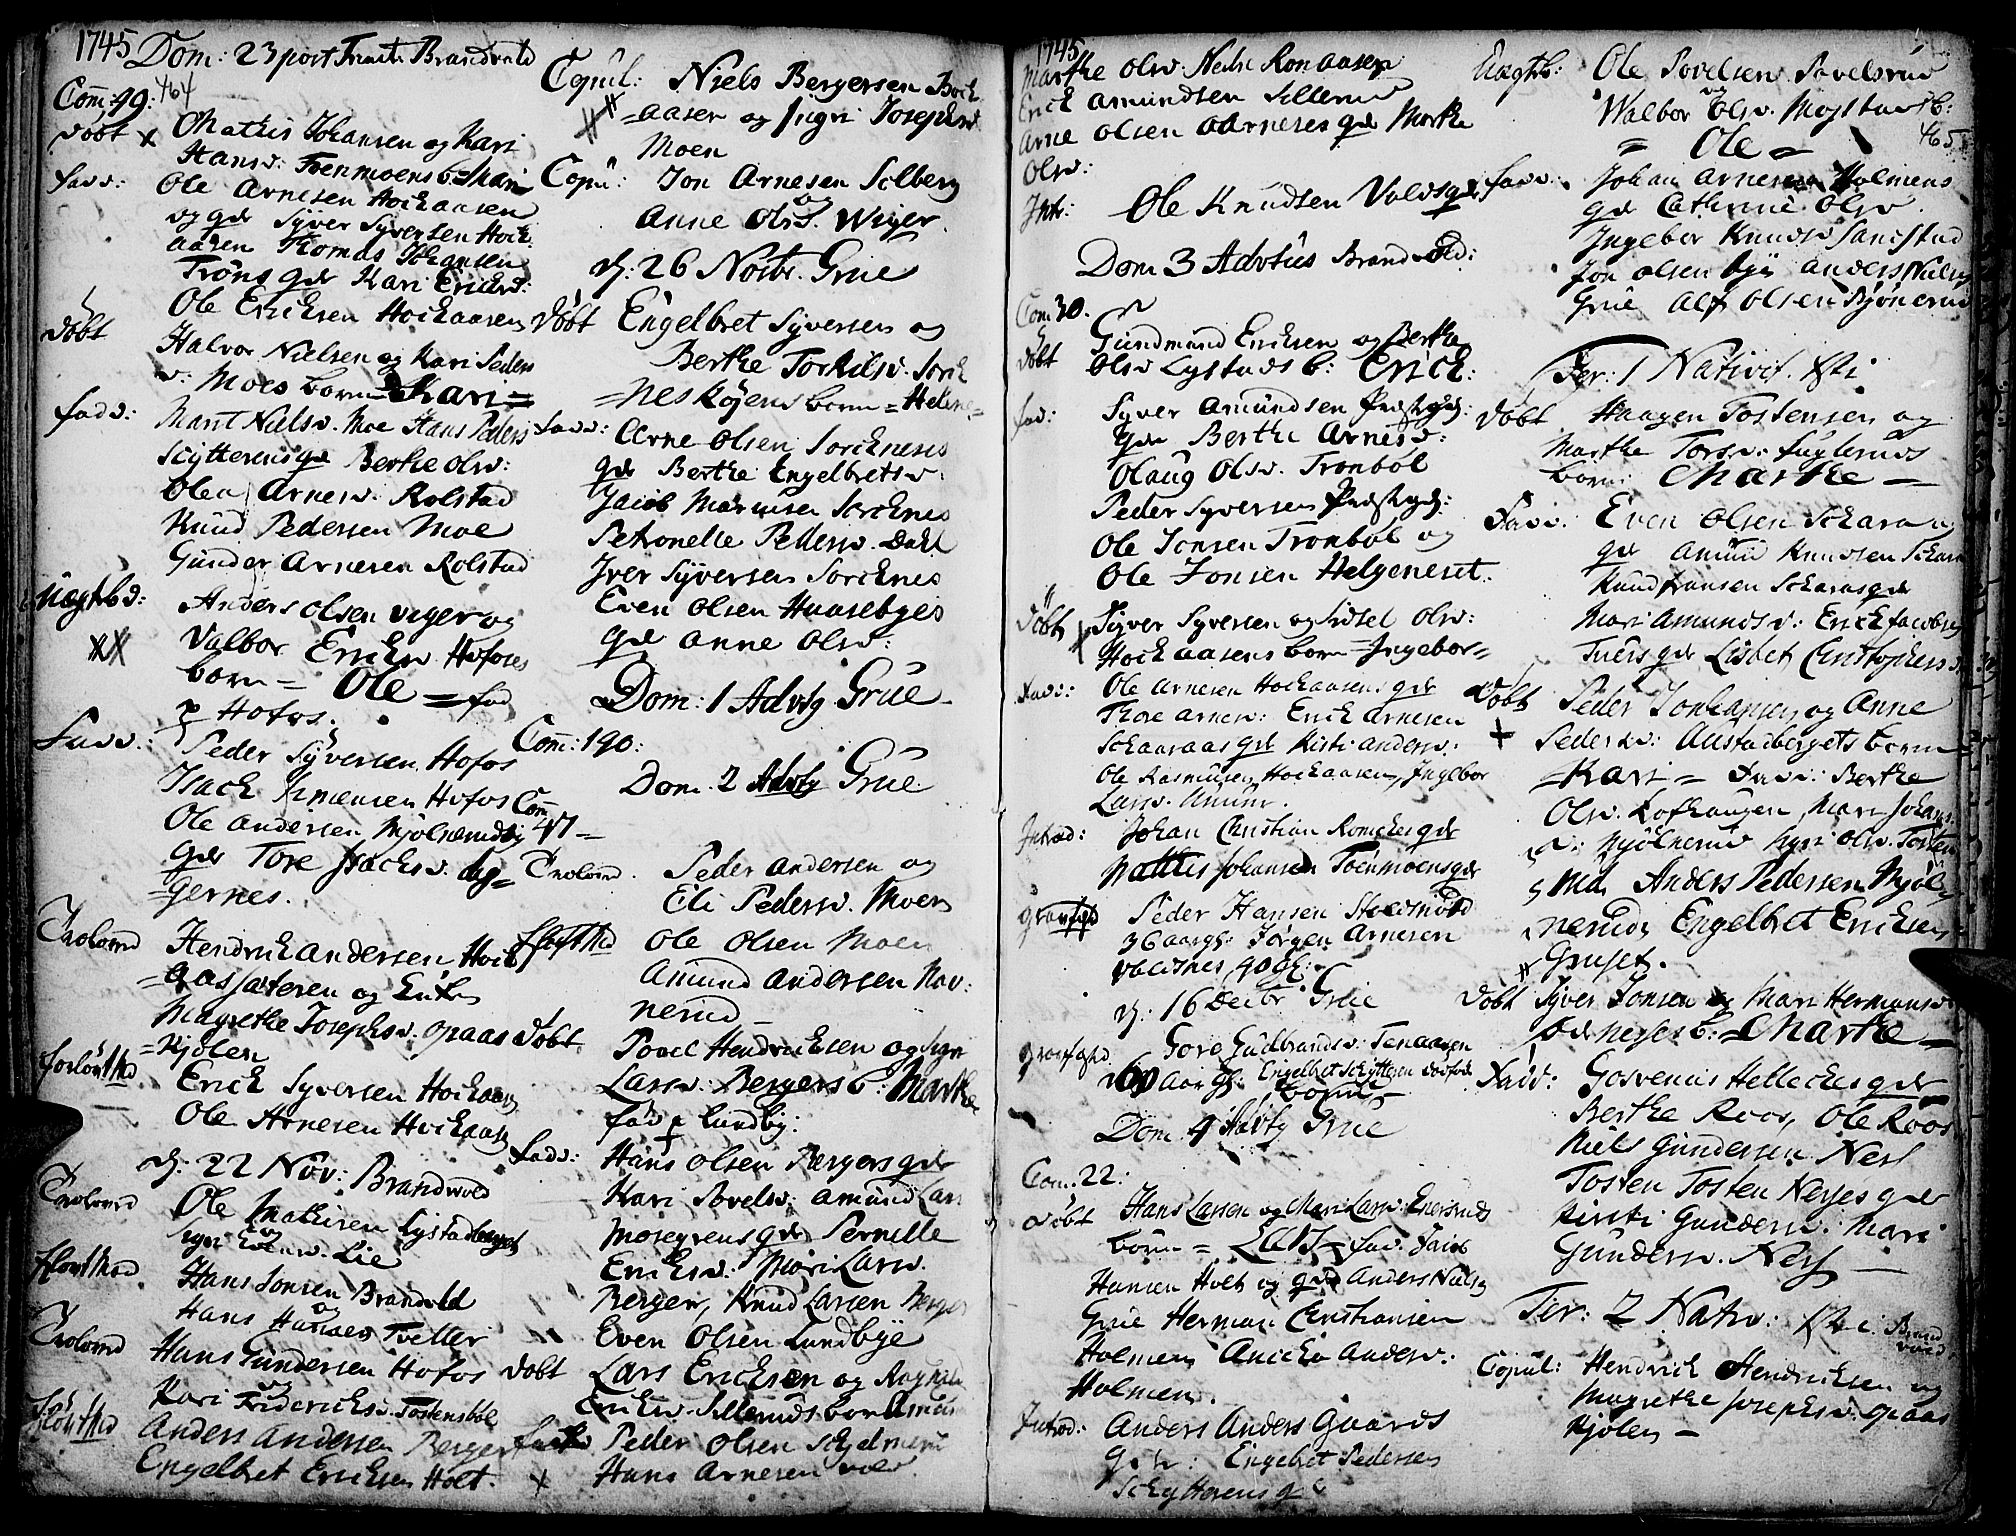 1745 Dom: 23 post Trinit: Brandvold
464
Com: 49:
Døbt Mathis Johansen og Kari
Hansd: Toenmoens b: Mari
fadd: Ole Arnesen Hockaasen
og gdr Syver Syversen Hock:
aasen Thomas Johansen
Trøns gdr Kari Ericksd:
Ole Ericksen Hockaasen
Døbt Halvor Nielsen og Kari Peders
d: Moes barn = Kari =
fadd: Marit Nielsd. Moe Hans Peders
Schytterens gdr Berthe Olsd:
Olea Arnesd. Rolstad
Knud Pedersen Moe
Gunder Arnesen Rolstad
Uægtebd: Anders Olsen Viger og
Valbor Ericksd. Hofoses
barn = Ole = fød
p Hofos.
Fadd: Peder Syversen Hofos
Isach Hofos
Ole Andersen Mjølnerudby
gdr Tore Isachsd. Ag=
=gernes.
Trolovd Hendrich Andersen Hock
=aassæteren og
Magrethe Josephsd. Opaas
=Kjølen
Forlovthed Erich Syversen Hockaasen
Ole Arnesen Hockaasen
D: 22 Nov: Brandvold
Trolovd Ole Mathisen Lystadberget
og
Syri Evensd. Lie
fflovthed Hans Jonsen Brandvold
og
Hans Hansen Tvetter
Trolovd Hans Gundersen Hofos
og
Kari Fridericksd. Tostensbøl
fflovthed Anders Andersen Berger
Engelbret Ericksen Holt.
Copul: Niels Bergersen Hock
=aasen og Ingri Josephsd
Moen
Copul: Jon Arnesen Solberg
og
Anne Olsd. Wiger.
D: 26 Novbr. Grue
Døbt Engelbret Syversen og
Berthe Tockilsd. Sorck
=neskøjens barn = Helene=
Fadd: Arne Olsen Sorcknes
gdr Berthe Engelbretsd.
Jacob Mariusen Sorcknes
Petronelle Pedersd. Dahl
Iver Syversen Sorcknes
Even Olsen Haasebyes
gdr Anne Olsd:
Dom: 1 Advtg Grue
Com: 190:
Dom. 2 Advtg Grue
Com
47 -
Trolovd. Peder Andersen og
Eli Pedersd. Moen
fflovthed Ole Olsen Moen
Amund Andersen Nav:
nerud
Døbt Povel Hendricksen og Syri
Larsd: Bergers b: Marthe
fød p Lundby.
Fadd: Hans Olsen Bergers gdr
Kari Povelsd: Amund Lars
Mosegrens gdr Pernille
Ericksd. Mari Larsd.
Berger, Knud Larsen Berger
Even Olsen Lundbye
Døbt Lars Ericksen og Ragnild
Ericksd. Sillerud barn Amun
Fadd Peder Olsen Schjelneru
Hans Arnesen

1745
Marthe Olsd. Neder Ronaasen
Erick Amundsen Sillerud
Arne Olsen Aarneses gdr Marthe
Olsd:
Intr: Ole Knudsen Volds gdr.
Dom 3 Advtus Brandvold:
Com 30.
Døbt Gundmund Ericksen og Berthe
Olsd Lystads b: Erick:
fad: Syver Amundsen Præstgrd:
gdr Berthe Arnesd:
Olaug Olsd. Trønbøl
Peder Syversen Præstgrd:
Ole Jonsen Trønbøl og
Ole Jonsen Helgeneset.
Døbt Syver Syversen og Sidsel Olsd:
Hockaasens barn =Ingebor=
Fadd: Ole Arnesen Hockaasens gdr
Thore Arnesd: Erick Arnesen
Schaaraas gdr Kirsti Andersd:
Ole Rasmusen Hockaasen, Ingebor
Larsd.
Introd: Johan Christian Romckes gdr
Mathis Johansen Toenmoens gdr
Gravfæst Peder Hansen
36 aar gl: Jørgen Arnesen
90 gl:
D: 16 Decbr Grue
Gravfæstd Goro Gudbrandsd. Tenaasen
60 aar gl: Engelbret Schytteren
barn -
Dom. 4 Advtg Grue
Com. 22:
Døbt Hans Larsen og Mari Larsd. Enersruds
barn = Lars = Fad. Jacob
Hansen Holt og gdr Anders Nielsen
Grue Herman Christiansen
Holmen Anicka Andersd:
Holmen.
Introd: Anders Anders Gaards
gdr: Engelbret Pedersen
Schytterens gdr
Uægteb: Ole Povelsen Povelsrud
og
Walbor Olsd. Mogstad b:
465
= Ole =
fadd. Johan Arnesen Holmens
gdr Cathrine Olsd.
Ingebor Knudsd Sandstad
Jon Olsen Anders Nielsen
Grue Alf Olsen Bjønerud
Fer: 1 Nativit. Xsti
Døbt Haagen Tostensen og
Marthe Torsd. Fugleruds
barn: Marthe -
Fadd: Even Olsen Schara og
gdr Amund Knudsen Schara
Knud Fransen Scharas gdr
Mari Amundsd: Erick Jacobsen
Tuers gdr Lisbet Christophersd
Døbt Peder Johansen og Anne
Pedersd: Austadbergets barn
=Kari= Fadd: Berthe
Olsd. Kofhaugen, Mari Johans
d: Mjølnerud Syri Olsd. Tosten
Anders Pedersen Mjøl
nerud, Engelbret Ericksen
Gruset.
Døbt Syver Jonsen og Mari Hermansd
b: =Marthe=
Fadd: Gosvenius Helleckes gdr
Berthe Roos, Ole Roos
Niels Gundersen Nes
Tosten Tosten Neses gdr
Kirsti Gundersd. Mari
Gundersd. Nes
Fer: 2 Nativ: Xti Brand
vold
Copul: Hendrich Hendricksen og
Magrethe Josephsd. Opaas
Kjølen -